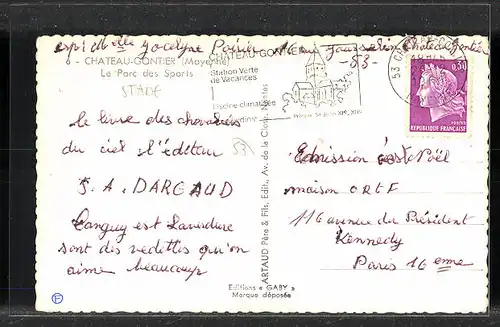 expi Melle Jocelyne Poirier 16 rue Jousselin Chateau Gontier
- 53 -
6 - CHATEAU-GONTIER (Mayenne)
Le Parc des Sports
STADE
CHATEAU-GONTIER
Station Verte
de Vacances
Piscine climatisée
53
0,30
POSTES
REPUBLIQUE FRANÇAISE
Le livre des chevaliers
du ciel l'éditeur
S.A. DARGAUD
Tanguy est Laverdure
sont des vedettes qu'on
aime beaucoup
53
ARTAUD Père & Fils, Edit., Av. de la Close, Nantes
Emission est Noël
maison ORTF
116 avenue du Président
Kennedy
Paris 16 eme
Editions « GABY »
Marque déposée
F